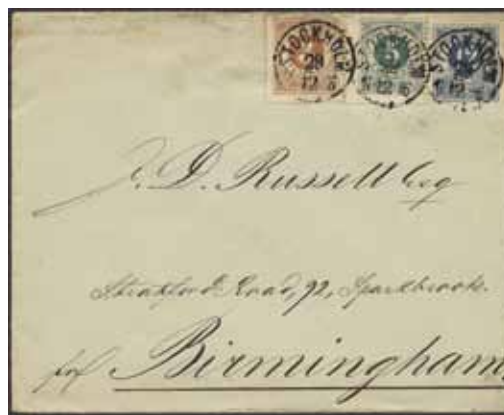 STOCKHOLM STOCKHOLM STOCKHOLM
29 5
12 12 12
J. D. Russell Esq
Stratford Road, 92, Sparkbrook.
Birmingham